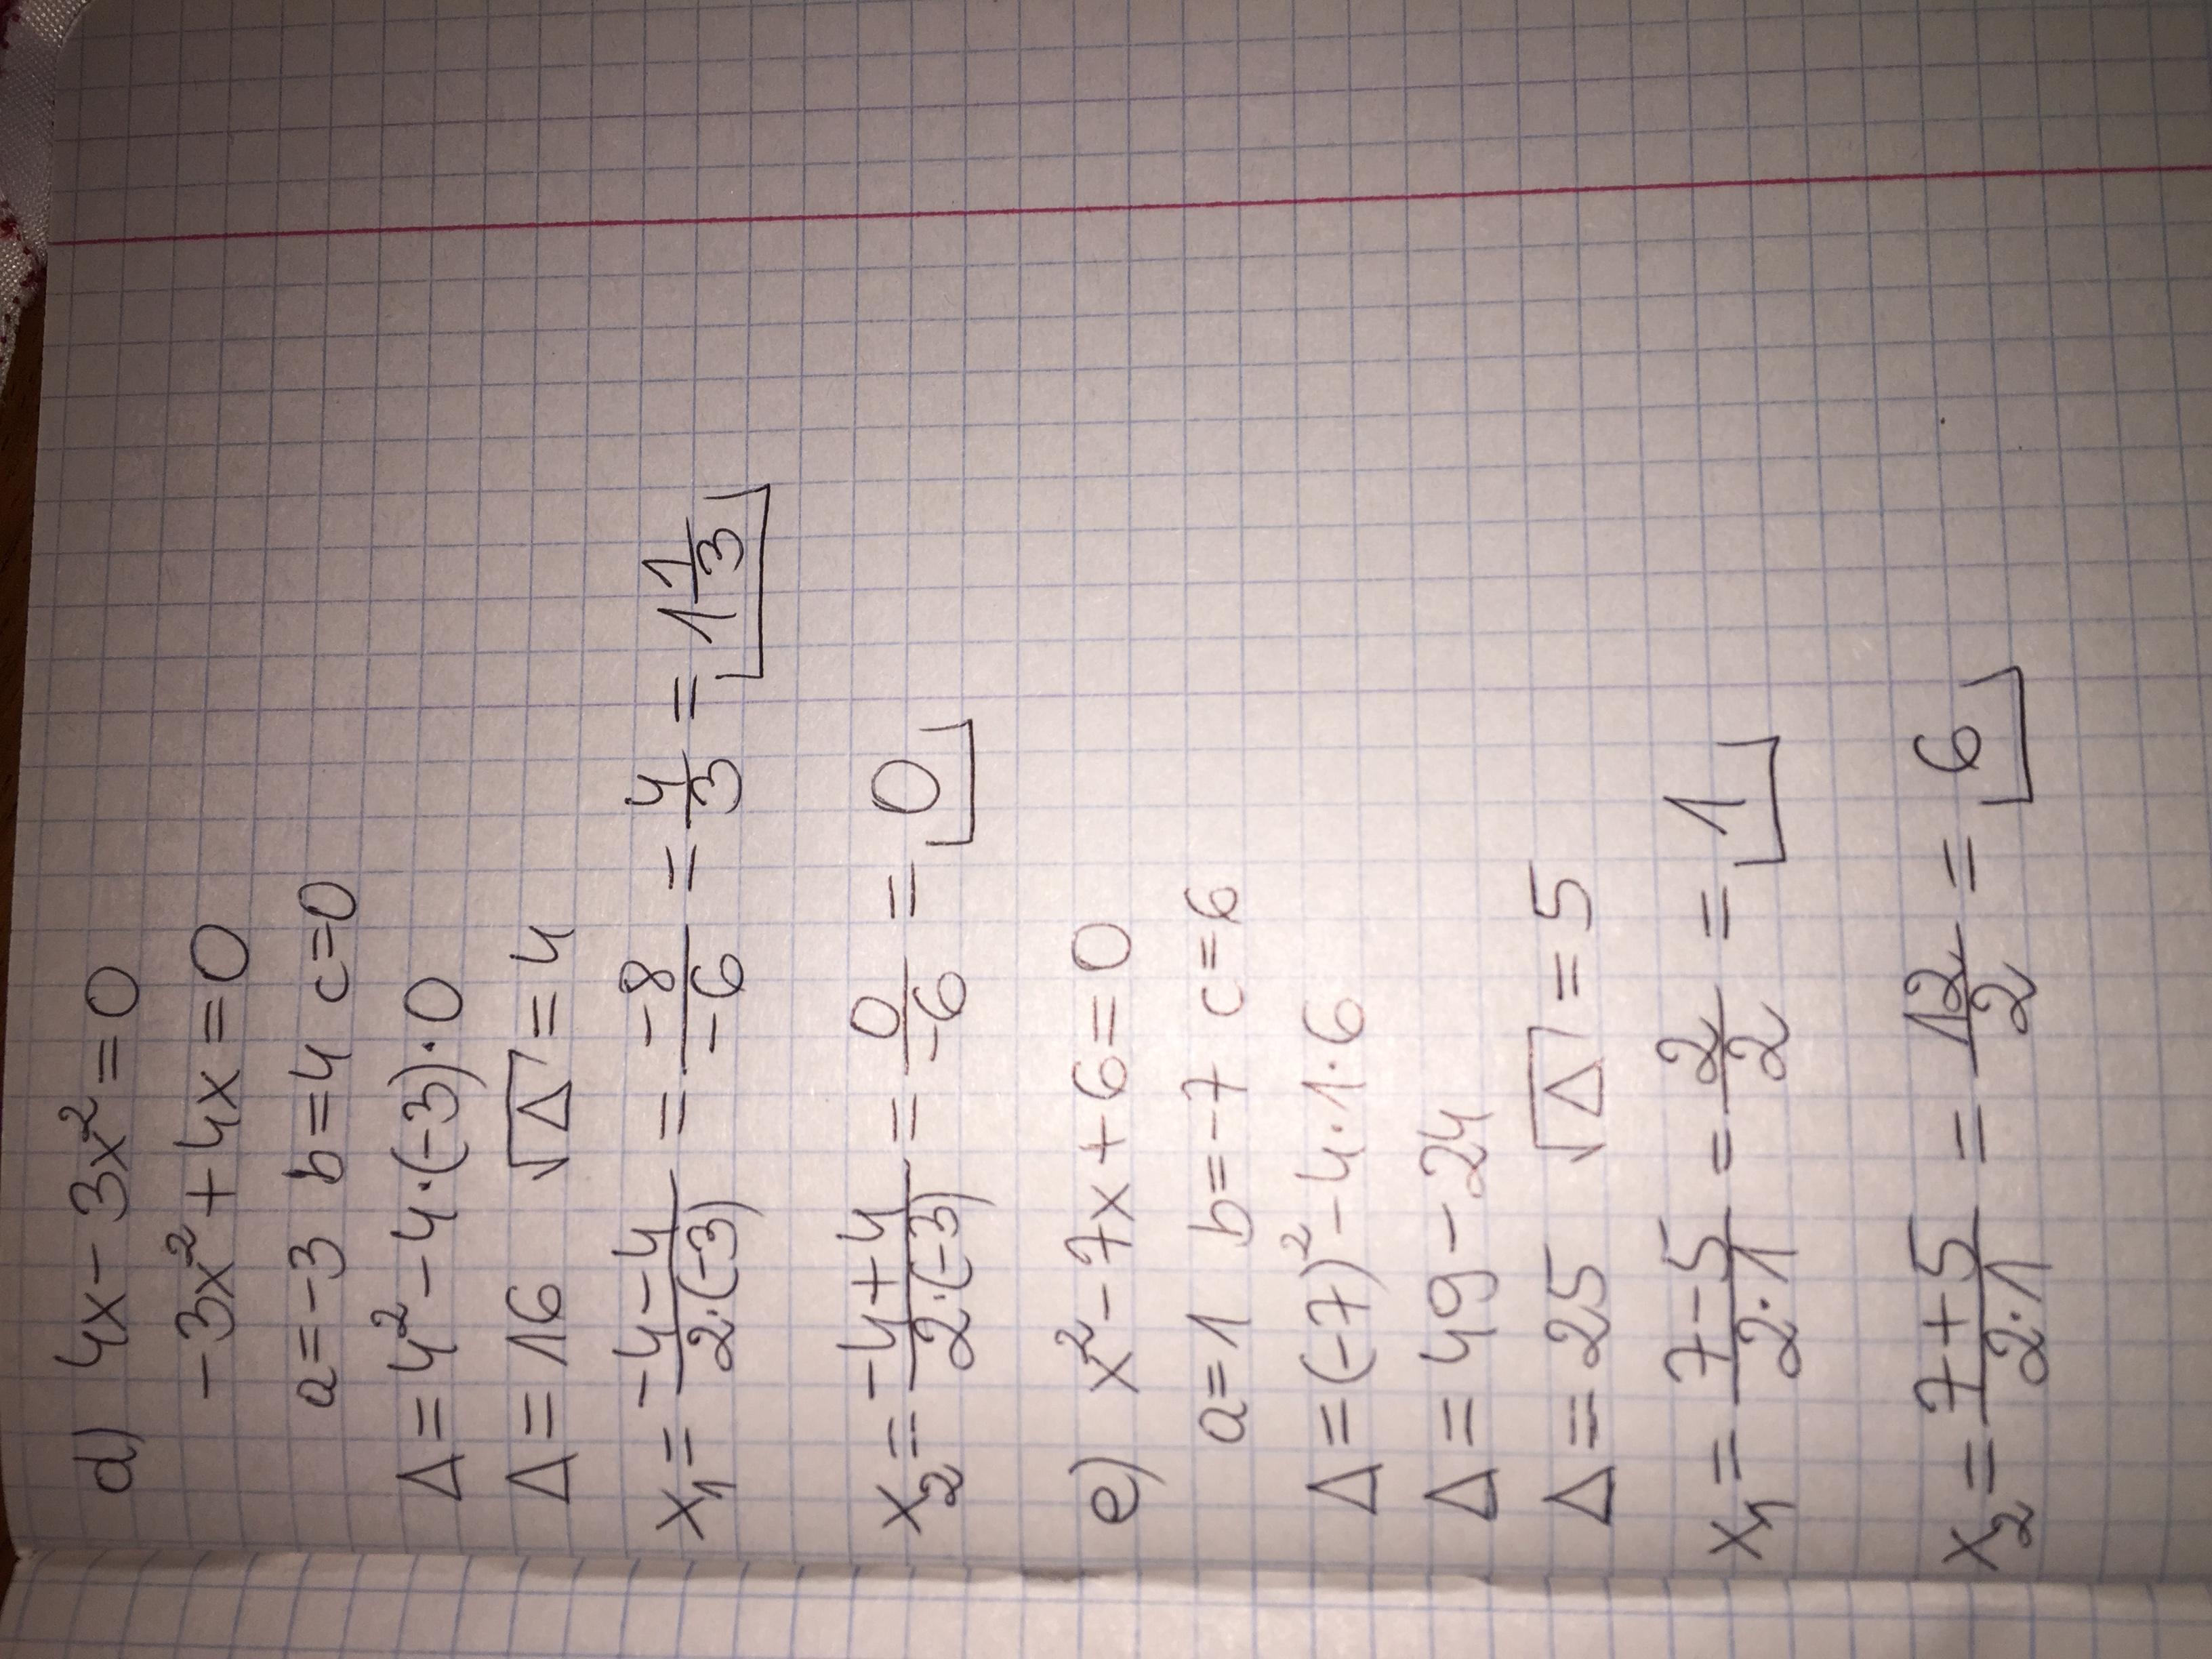 d) 4x - 3x² = 0
-3x² + 4x = 0
a = -3 b = 4 c = 0
Δ = 4² - 4·(-3)·0
Δ = 16 √Δ = 4
x₁ = (-4-4)/(2·(-3)) = (-8)/(-6) = 4/3 = 1 1/3
x₂ = (-4+4)/(2·(-3)) = 0/(-6) = 0
e) x² - 7x + 6 = 0
a = 1 b = -7 c = 6
Δ = (-7)² - 4·1·6
Δ = 49 - 24
Δ = 25 √Δ = 5
x₁ = (7-5)/(2·1) = 2/2 = 1
x₂ = (7+5)/(2·1) = 12/2 = 6